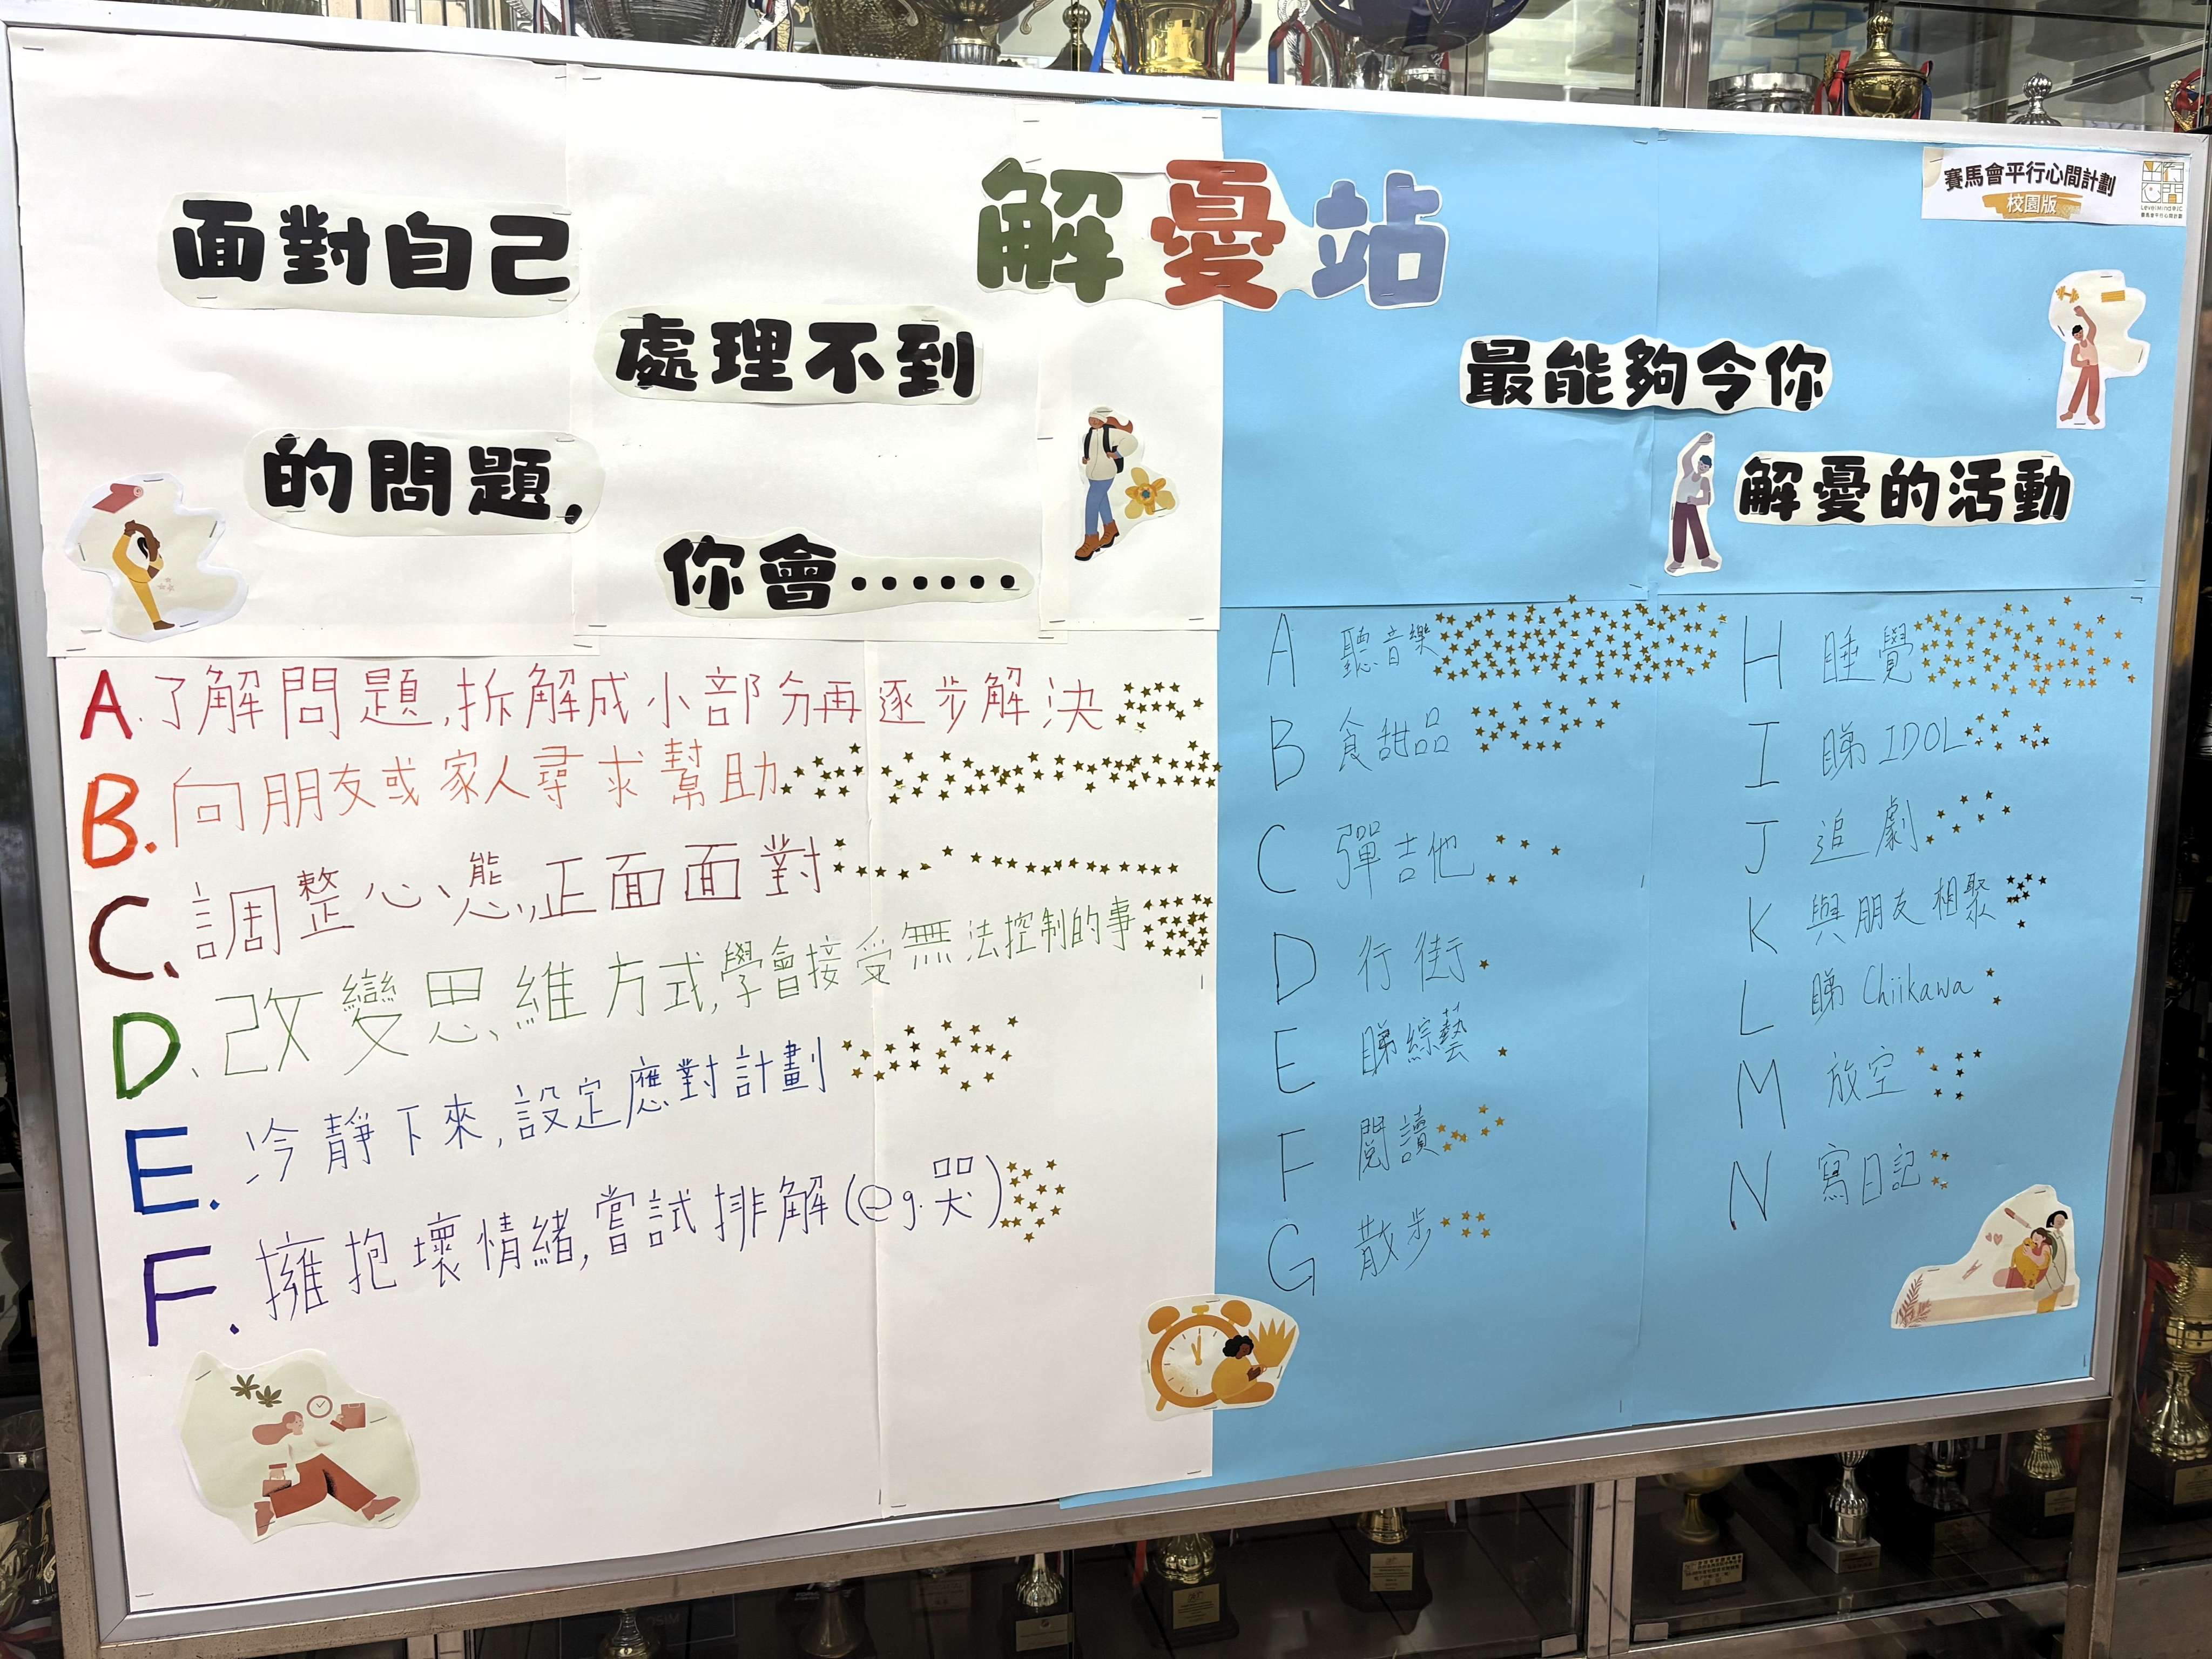 解憂站
賽馬會平行心間計劃
校園版
LevelMind@JC
賽馬會平行心間計劃
面對自己
處理不到
的問題,
你會……
A.了解問題,拆解成小部分再逐步解決
B.向朋友或家人尋求幫助
C.調整心態,正面面對
D.改變思維方式,學會接受無法控制的事
E.冷靜下來,設定應對計劃
F.擁抱壞情緒,嘗試排解(e.g.哭)
最能夠令你
解憂的活動
A 聽音樂
B 食甜品
C 彈吉他
D 行街
E 睇綜藝
F 閱讀
G 散步
H 睡覺
I 睇IDOL
J 追劇
K 與朋友相聚
L 睇Chiikawa
M 放空
N 寫日記